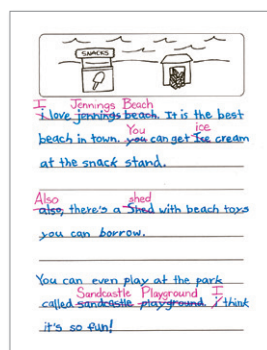 SNACKS
I Jennings Beach
i love jennings beach. It is the best
You ice
beach in town. you can get Ice cream
at the snack stand.
Also shed
also, there's a Shed with beach toys
you can borrow.
You can even play at the park
Sandcastle Playground I
called sandcastle playground. i think
it's so fun!